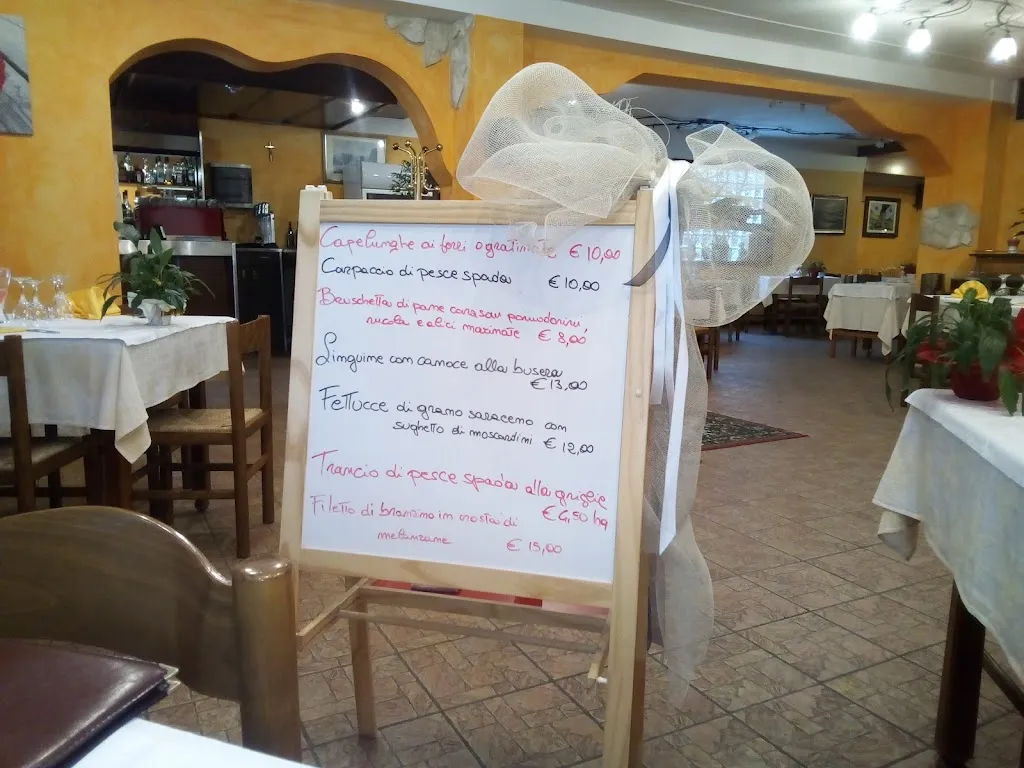 Capelunghe ai ferri o gratinate € 10,00
Carpaccio di pesce spada € 10,00
Bruschetta di pane carasau pomodorini,
rucola e alici marinate € 8,00
Linguine con canoce alla busera
€ 13,00
Fettucce di grano saraceno con
sughetto di moscardini € 12,00
Trancio di pesce spada alla griglia
€ 4,50 hg
Filetto di branzino in crosta di
melanzane € 15,00